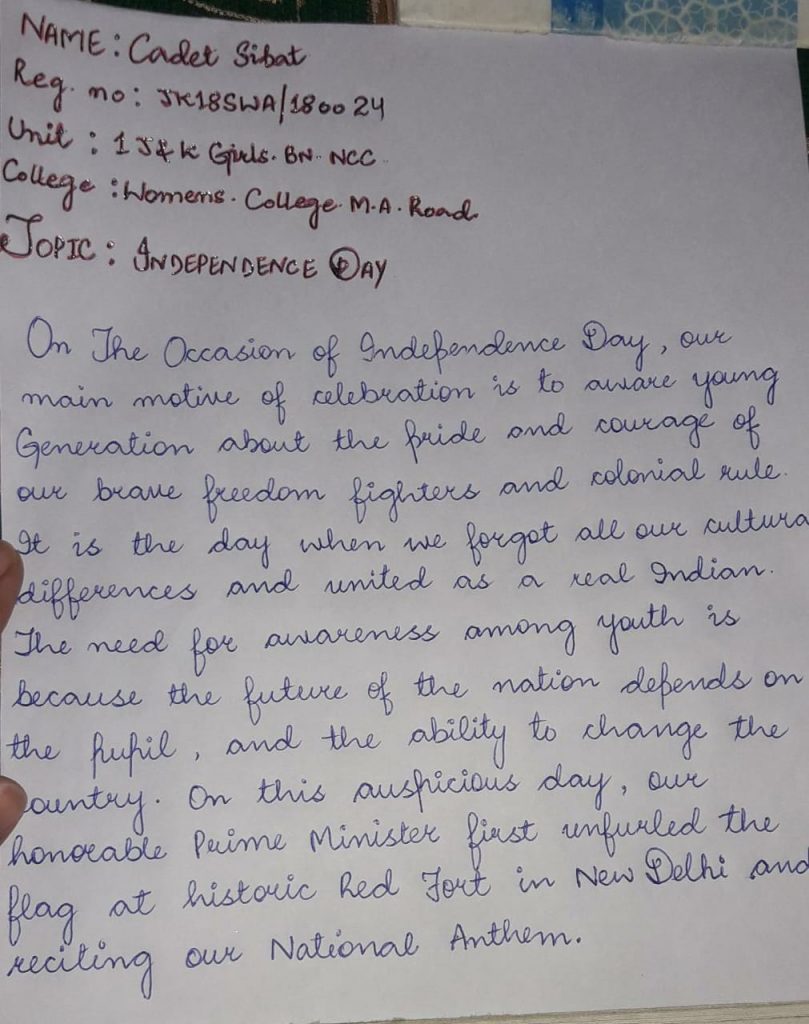 NAME: Cadet Sibat
Reg. no: JK18SWA/180024
Unit : 1 J&K Girls. BN. NCC.
College : Womens. College. M.A. Road.
TOPIC: INDEPENDENCE DAY
On The Occasion of Independence Day, our
main motive of celebration is to aware young
Generation about the pride and courage of
our brave freedom fighters and colonial rule.
It is the day when we forgot all our cultura
differences and united as a real Indian.
The need for awareness among youth is
because the future of the nation depends on
the pupil, and the ability to change the
ountry. On this auspicious day, our
honorable Prime Minister first unfurled the
flag at historic Red Fort in New Delhi and
reciting our National Anthem.